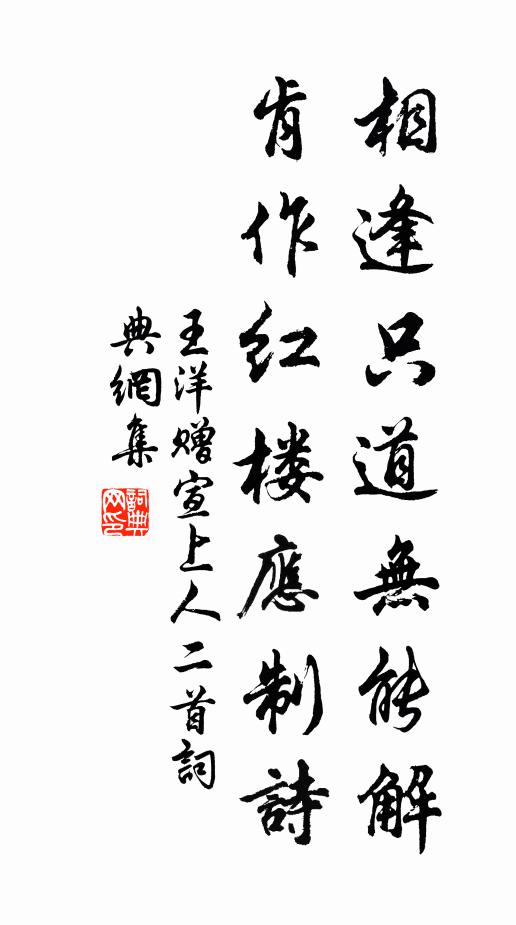 相逢只道無能解
肯作红楼應制詩
王洋贈宣上人二首詞
典網集
詞典
网印